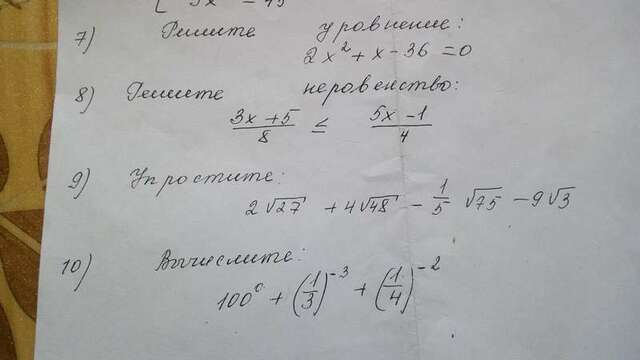 7) Решите уравнение:
2x² + x - 36 = 0
8) Решите неравенство:
(3x + 5)/8 ≤ (5x - 1)/4
9) Упростите:
2√27 + 4√48 - 1/5 √75 - 9√3
10) Вычислите:
100⁰ + (1/3)⁻³ + (1/4)⁻²